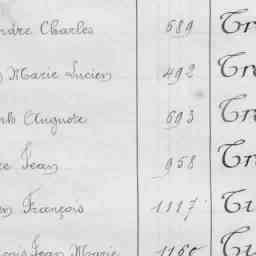 ndre Charles 689 Tr
Marie Lucien 492 Tr
Auguste 693 Tr
re Jean 958 Tr
en François 1117 Tu
ouis Jean Marie 1160 Tu